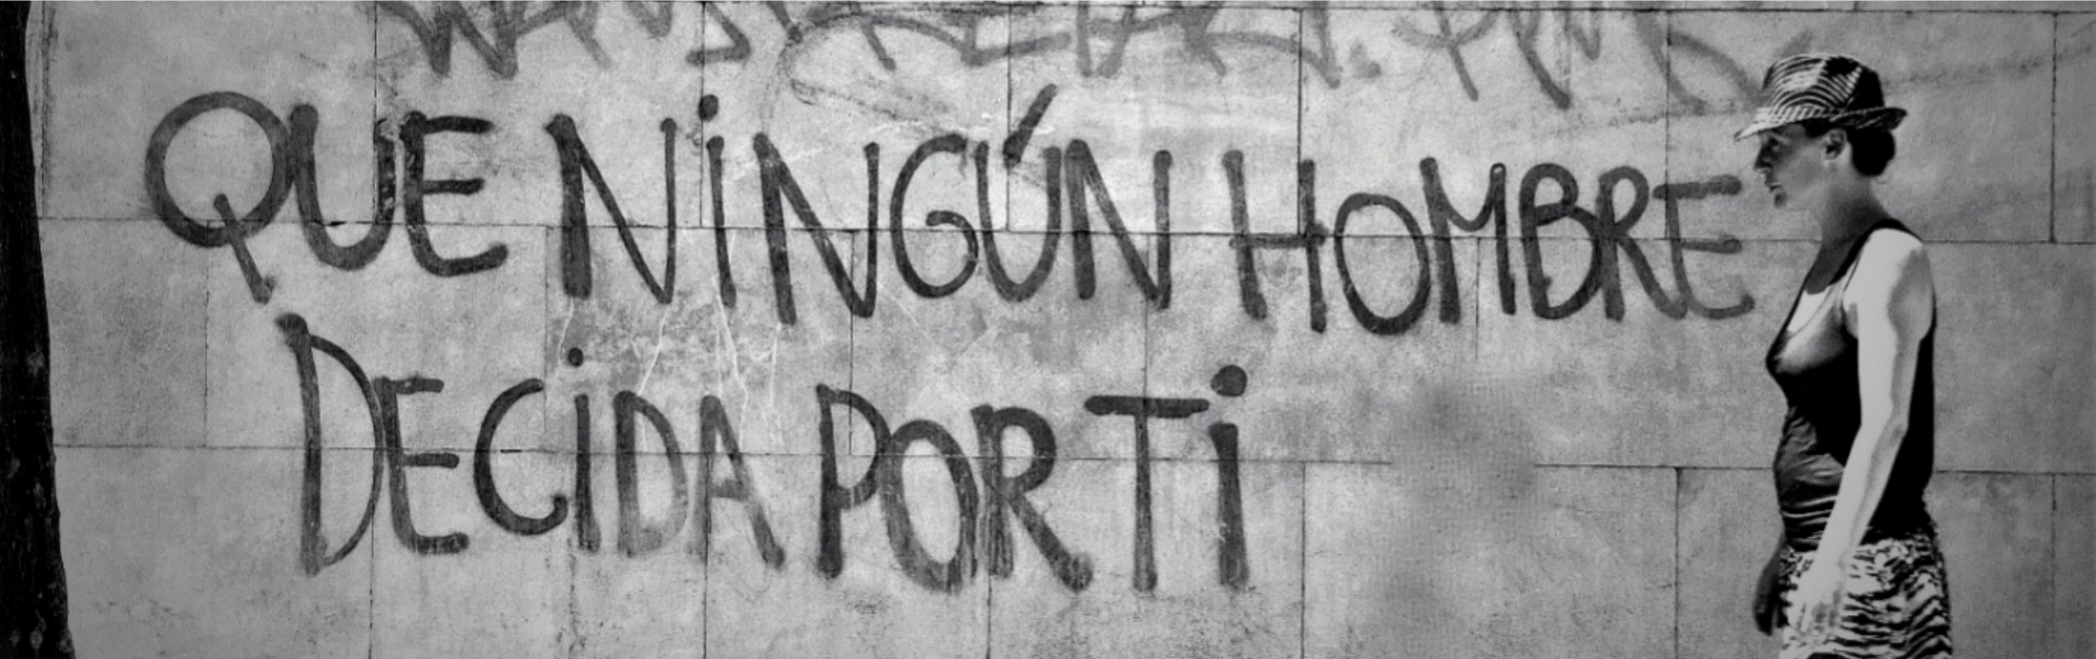 QUE NiNGÚN HOMBRE
DECiDA POR Ti